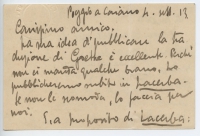 Poggio a Caiano 4. sett. 13
Carissimo amico,
La sua idea di pubblicare la tra
duzione di Goethe è eccellente. Perchè
non ci manda qualche brano, lo
pubblicheremo subito in Lacerba.
Se non le scomoda, lo faccia per
noi.
E, a proposito di Lacerba: